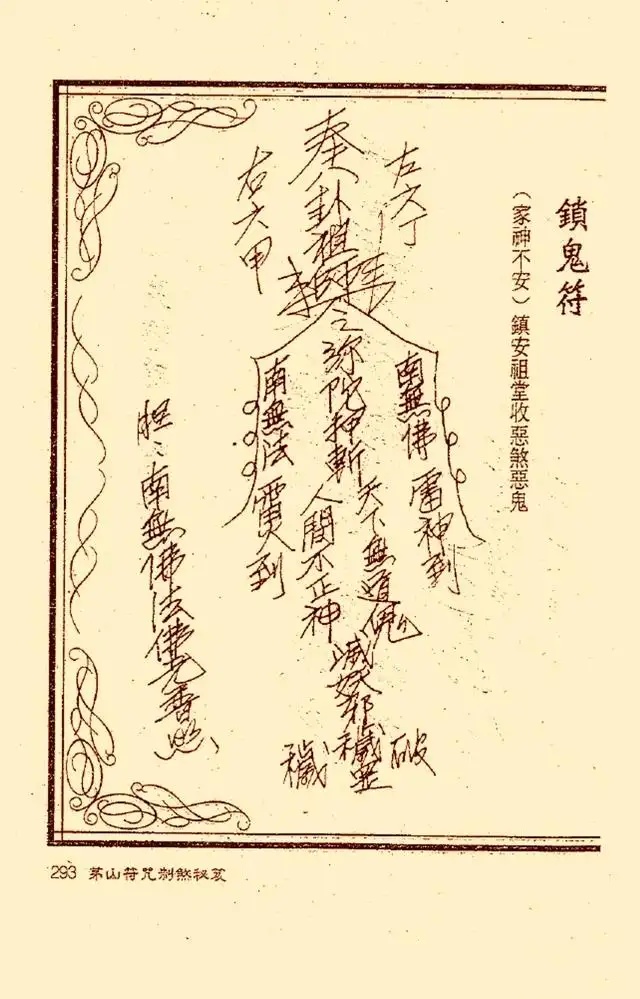 鎖鬼符
（家神不安）鎮安祖堂收惡煞惡鬼
左六丁
奉八卦祖
右六甲
南無佛 雷神到
之弥陀押斬
天下無道
人間不正神
滅妖邪穢
南無法 到
破
穢
南無佛法佛光普照
293 茅山符咒制煞秘笈